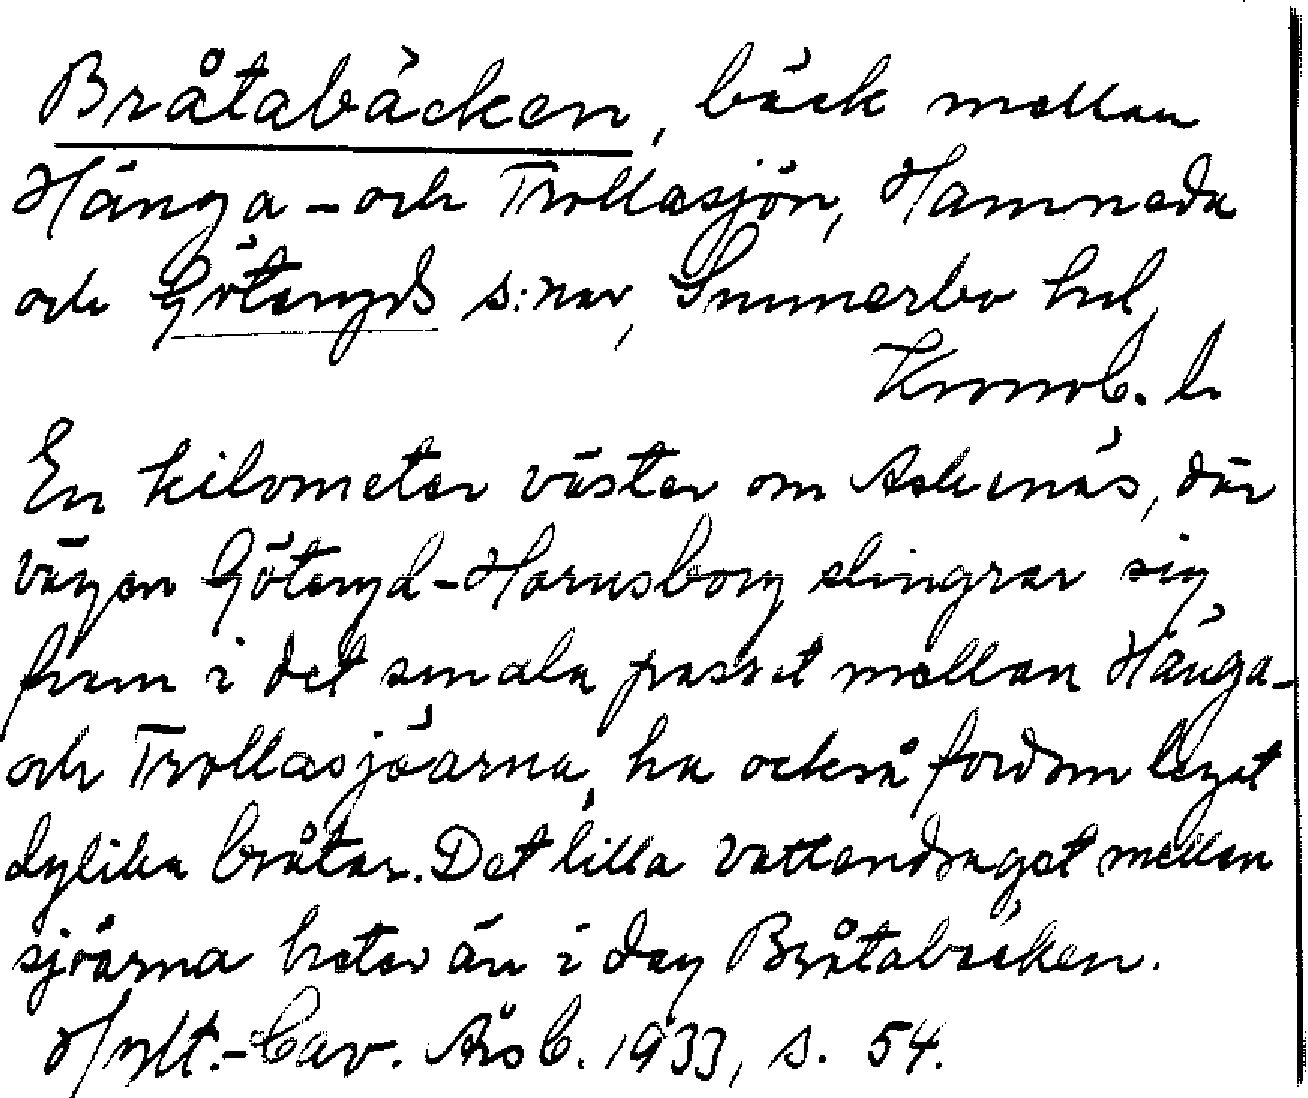 Bråtabäcken, bäck mellan
Hänga- och Trollasjön, Hamneda
och Göteryds s:nar, Sunnerbo hd,
Kronob. l.
En kilometer väster om Askenäs, där
vägen Göteryd-Hornsborg slingrar sig
fram i det smala passet mellan Hänga-
och Trollasjöarna, ha också fordom legat
dylika bråtar. Det lilla vattendraget mellan
sjöarna heter än i dag Bråtabäcken.
Hylt.-Cav. Årsb. 1933, s. 54.